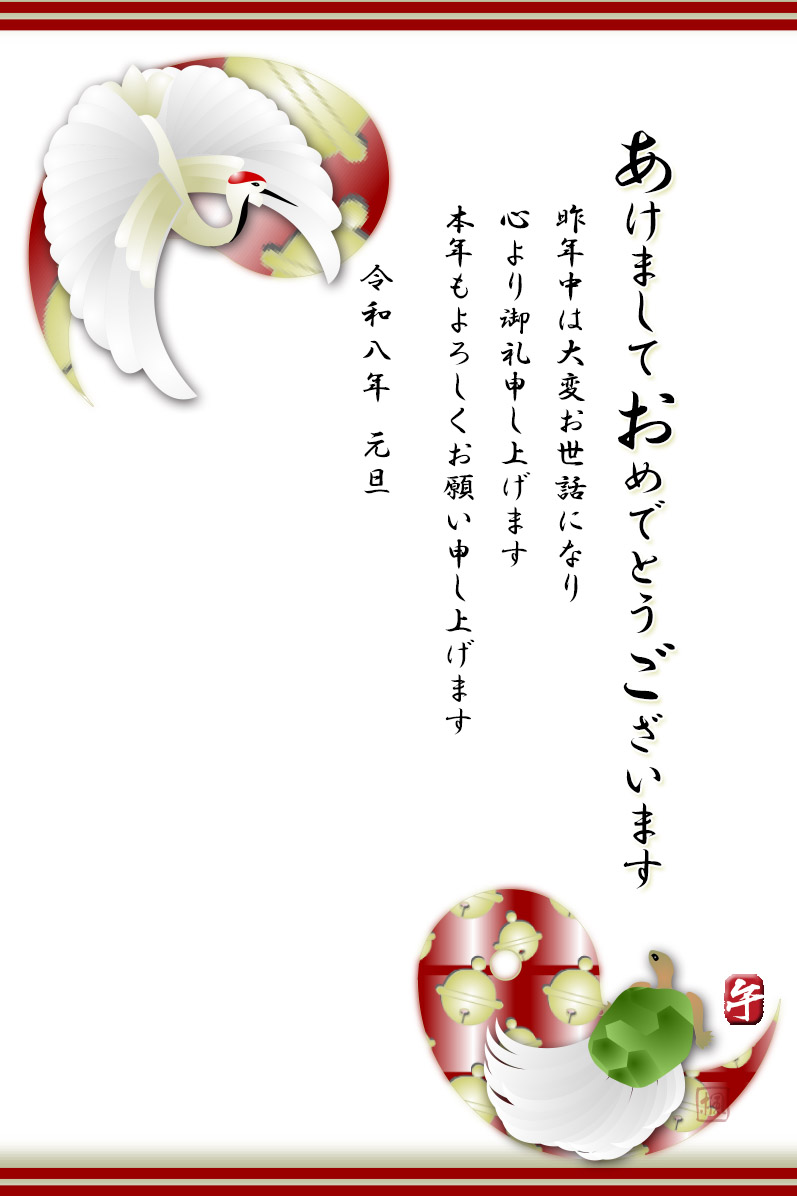 あけましておめでとうございます
昨年中は大変お世話になり
心より御礼申し上げます
本年もよろしくお願い申し上げます
令和八年 元旦
午